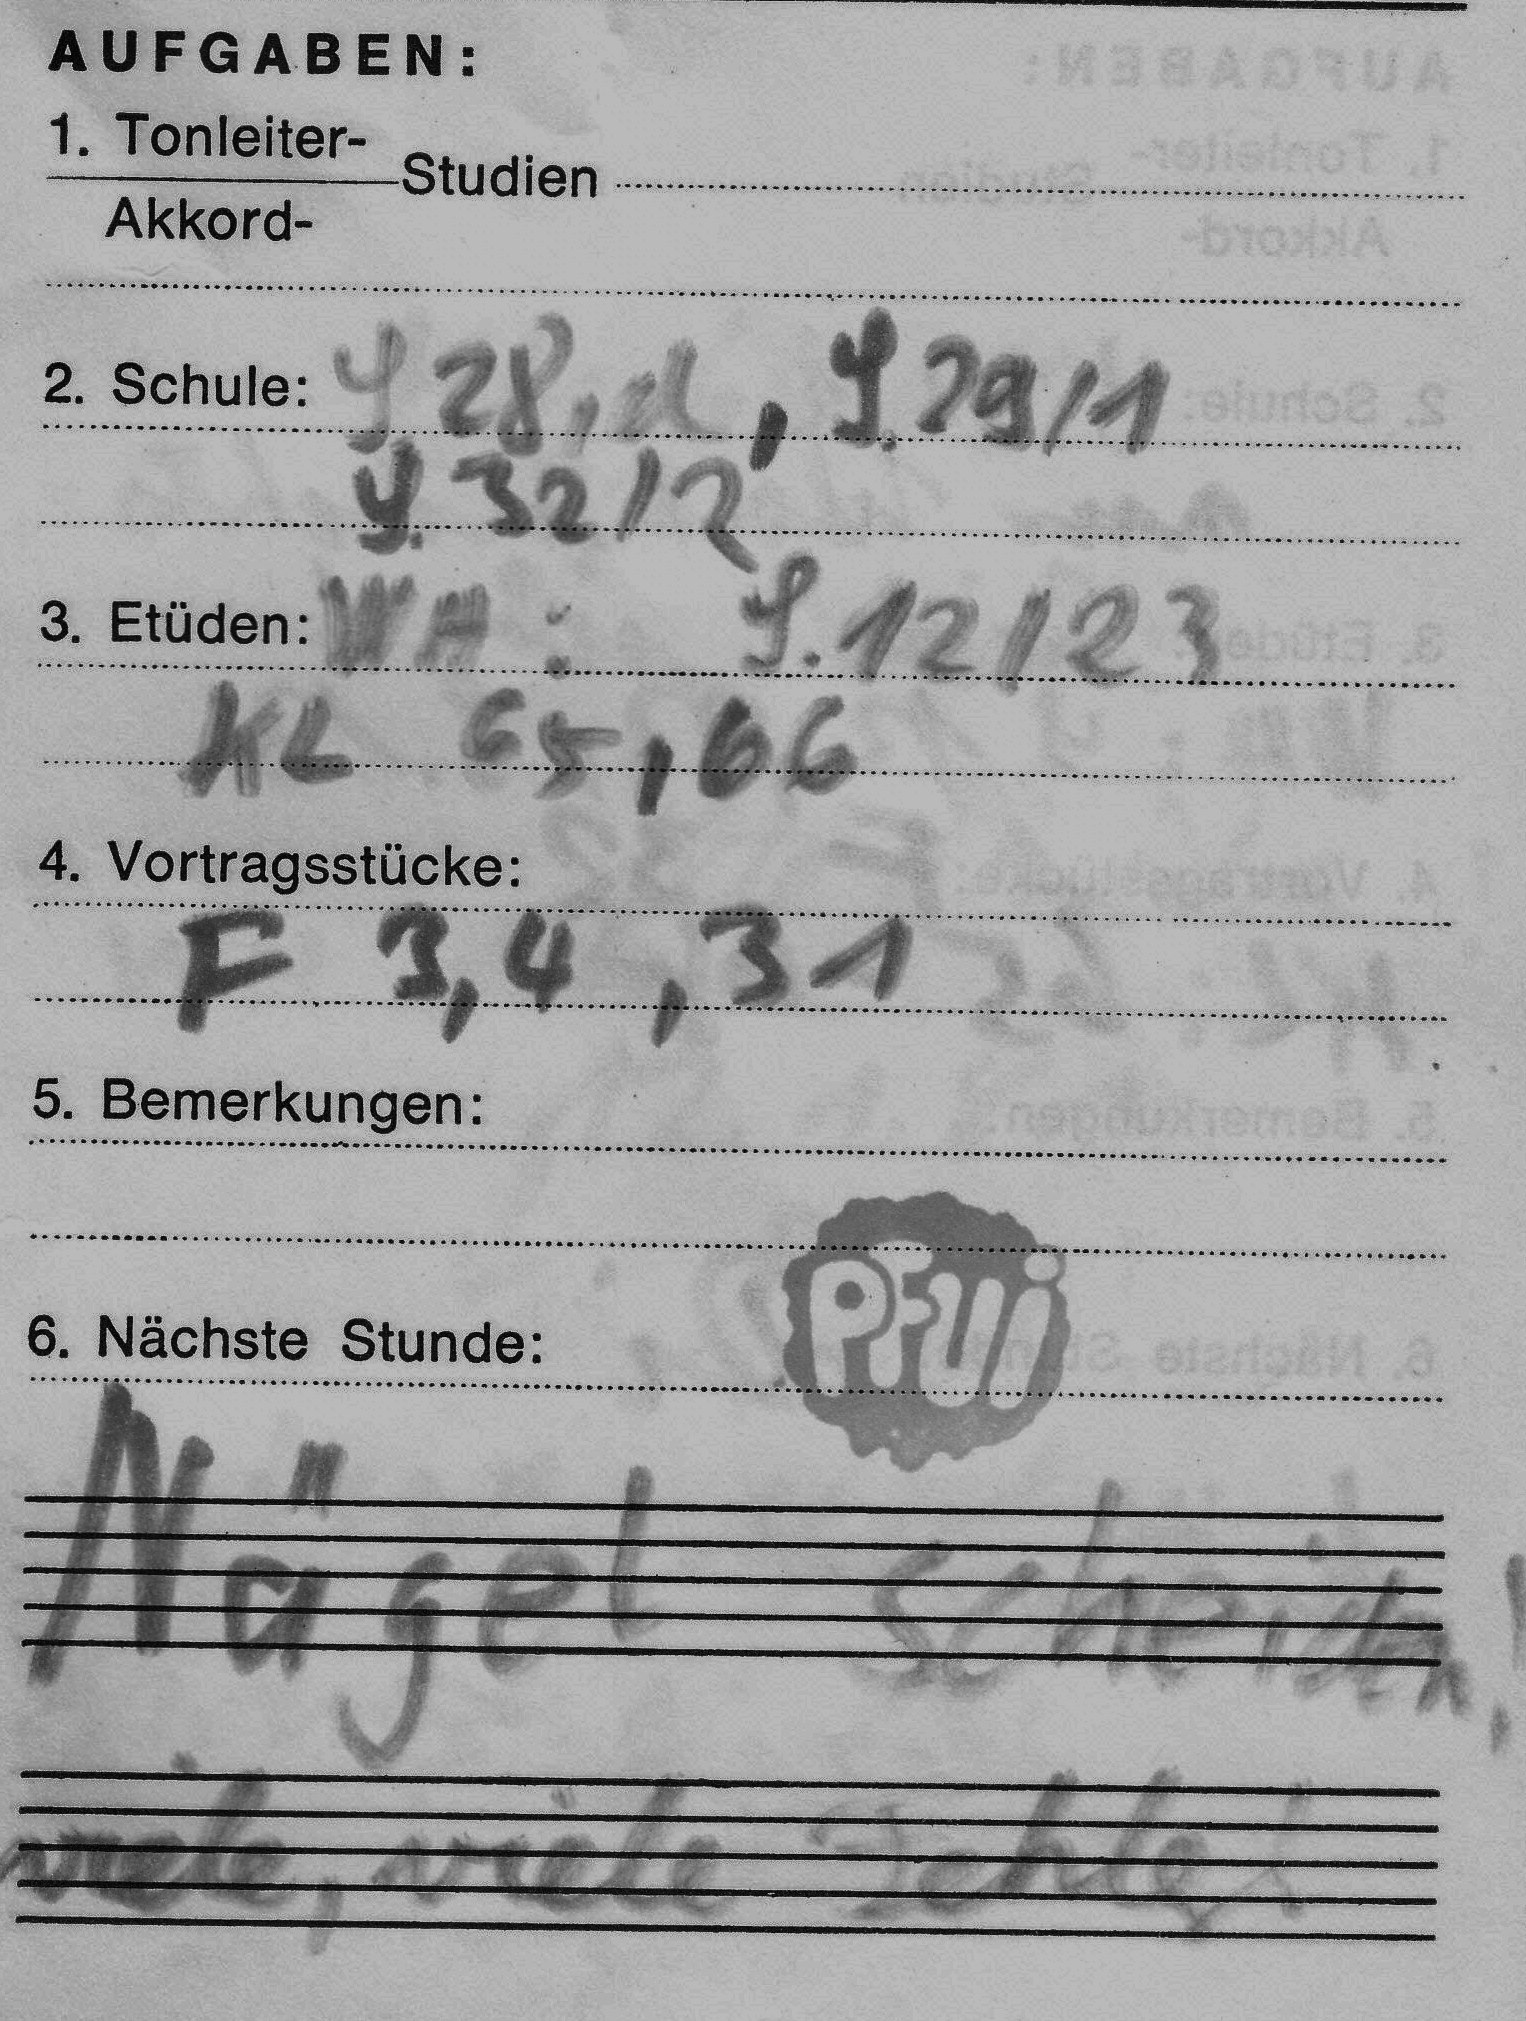 AUFGABEN:
1. Tonleiter-
Studien
Akkord-
2. Schule: S 28, d, S. 29/1
S. 32/2
3. Etüden: WH: S. 12/23
KL 65, 66
4. Vortragsstücke:
F 3, 4, 31
5. Bemerkungen:
PFUi
6. Nächste Stunde:
Nägel
viele, viele